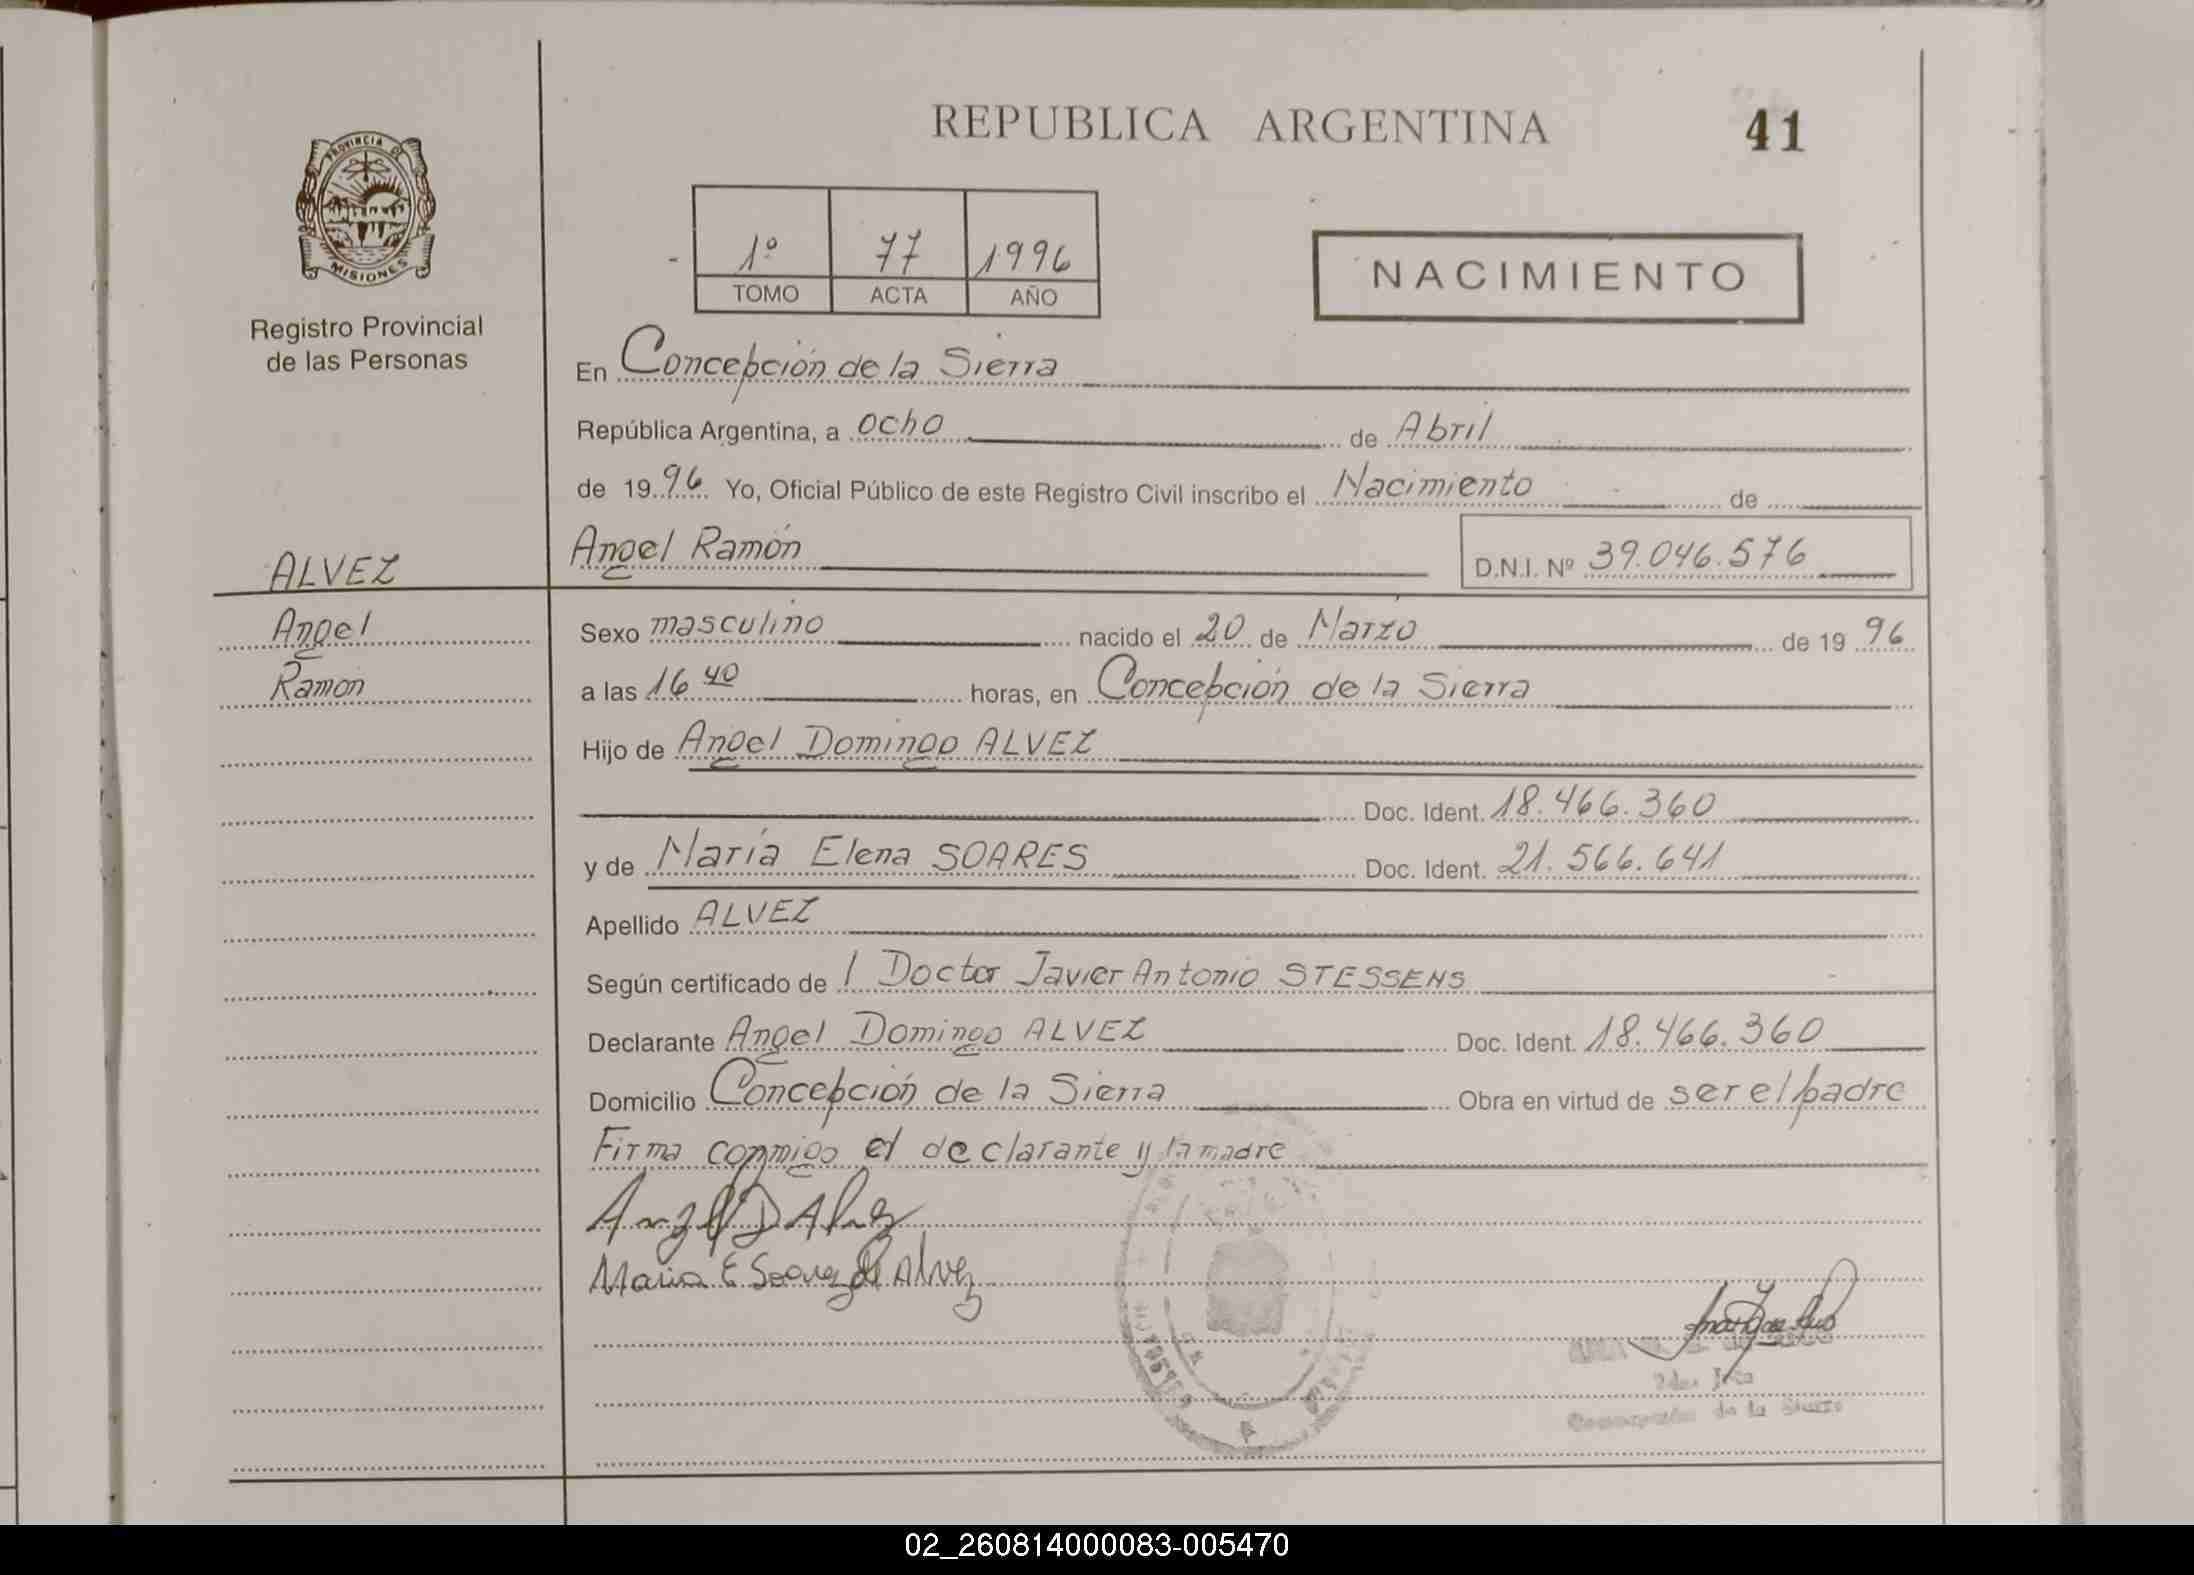 REPUBLICA ARGENTINA
41
PROVINCIA DE
MISIONES
Registro Provincial
de las Personas
1º 77 1996
TOMO ACTA AÑO
NACIMIENTO
En Concepción de la Sierra
República Argentina, a ocho de Abril
de 1996 Yo, Oficial Público de este Registro Civil inscribo el Nacimiento de
ALVEZ
Angel Ramón D.N.I. Nº 39.046.576
Angel
Ramón
Sexo masculino nacido el 20 de Marzo de 1996
a las 16 40 horas, en Concepción de la Sierra
Hijo de Angel Domingo ALVEZ
Doc. Ident. 18.466.360
y de María Elena SOARES Doc. Ident. 21.566.641
Apellido ALVEZ
Según certificado de l Doctor Javier Antonio STESSENS
Declarante Angel Domingo ALVEZ Doc. Ident. 18.466.360
Domicilio Concepción de la Sierra Obra en virtud de ser el padre
Firma conmigo el declarante y la madre
Angel D Alvez
Maria E Soarez de Alvez
de la Sierra
02_260814000083-005470